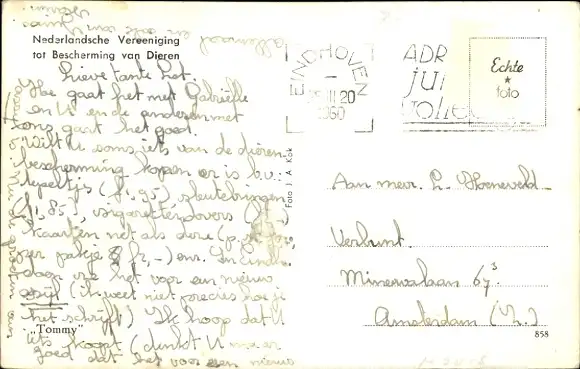 Nederlandsche Vereeniging
tot Bescherming van Dieren
Lieve tante Let.
Hoe gaat het met Gabriëlle
en U en de anderen met
ons gaat het goed.
Wilt U soms iets van de dieren-
bescherming kopen er is b.v.:
lepeltjes (f1,95), sleutelringen
(f1,85), sigarettendovers
kaarten net als deze
per pakje f2,-) enz. En
doen we het voor een nieuw
asyl (ik weet niet precies hoe je
het schrijft) Ik hoop dat U
iets koopt (denkt U maar
goed dat het voor een nieuw
"Tommy"
allemaal
Foto J. A. Kok
EINDHOVEN
20
1960
Echte
foto
Aan mevr. L. Hoeneveld-
Verbunt.
Minervalaan 67³
Amsterdam (Z.)
858